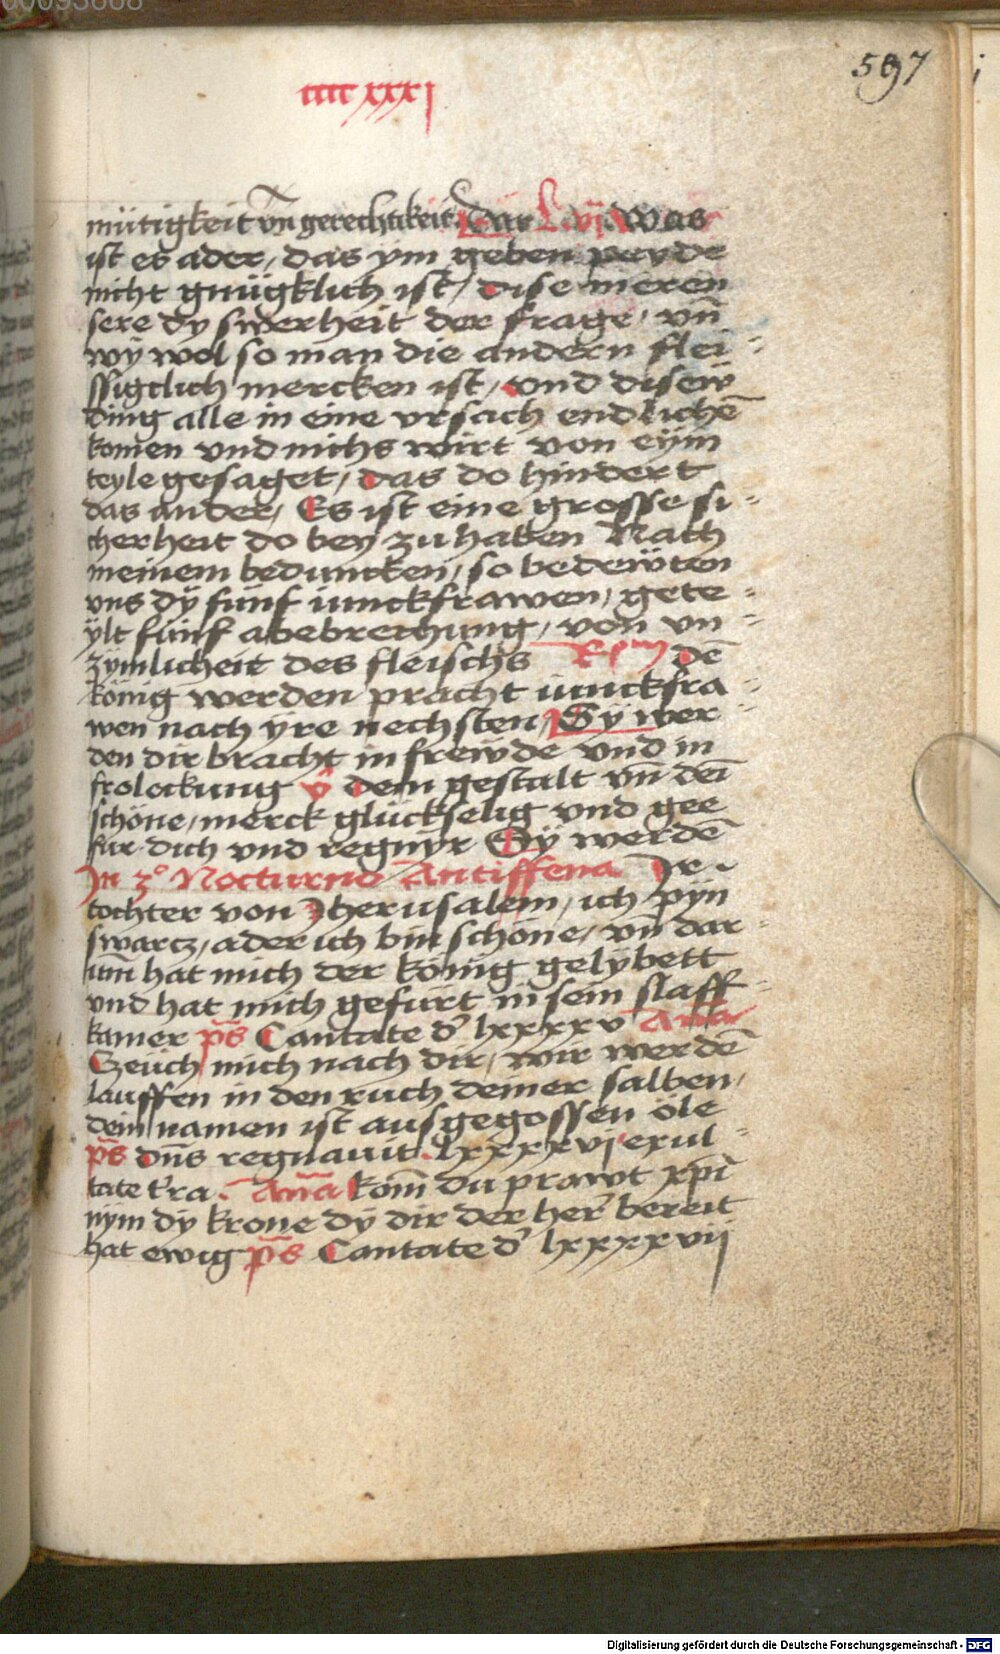 00093668
597
cccc xxxj
mütigkeit vn̄ gerechtikeit. Dar L vj was
ist es ader, das ym geben
nicht gnügklich ist, dise meren
sere dy swerheit der frage, vn̄
wÿ wol so man die andern flei-
ssigclich mercken ist, vnd disew
ding alle in eine vrsach endlichē
komen vnd nichs wirt von eÿm
teyle gesaget, das do hindert
das ander, Es ist eine grosse si-
cherheit do bey zu haben Nach
meinem beduncken, so bedewten
vns dÿ fünf iunckfrawen, gete-
ÿlt fünf abebrechung, von vn-
zÿmlicheit des fleischs Rsm dē
könig werden pracht iunckfra-
wen nach yre nechsten, Sÿ wer-
den dir bracht in frewde vnd in
frolockung v̂ dem gestalt vn̄ deī
schöne, merck glückselig vnd gee
für dich vnd regnyr Sÿ werdē
In 3o Nocturno Antiffena Ir
tochter von Iherusalem, ich pyn
swarcz, ader ich bin schöne, vn̄ dar-
um̄ hat mich der könig gelybett
vnd hat mich gefürt in sein slaff-
kamer ps̄ Cantate d' lxxxxv An̄a
Zeüch mich nach dir, wir werdē
lauffen in den ruch deiner salben,
dein namen ist ausgegossen öle
ps̄ dn̄s regnauit. lxxxxvj exul-
tate t'ra. An̄a kom̄ du prawt xpī
nÿm dÿ krone dÿ dir der her' bereit
hat ewig ps̄ Cantate d' lxxxxvij
Digitalisierung gefördert durch die Deutsche Forschungsgemeinschaft - DFG